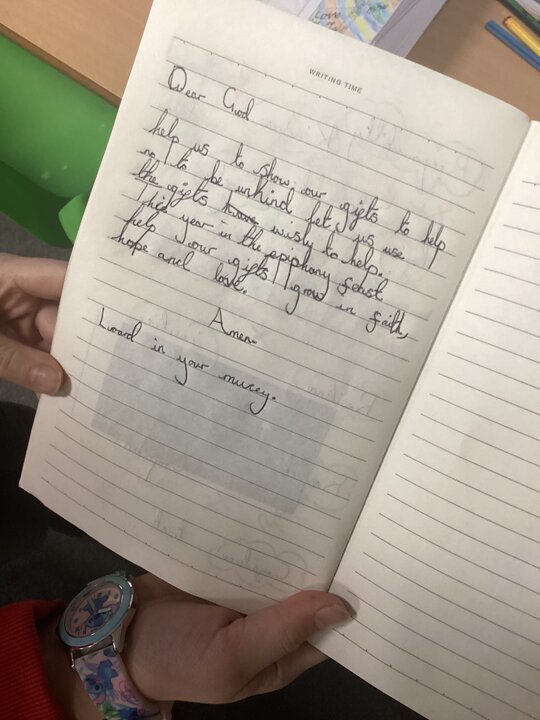 WRITING TIME
Dear God
help us to show our gifts to help
not to be unkind let us use
the gifts wisly to help.
This year in the epiphany feast
help our gifts grow in faith,
hope and love.
Amen
Lord in your mercy.